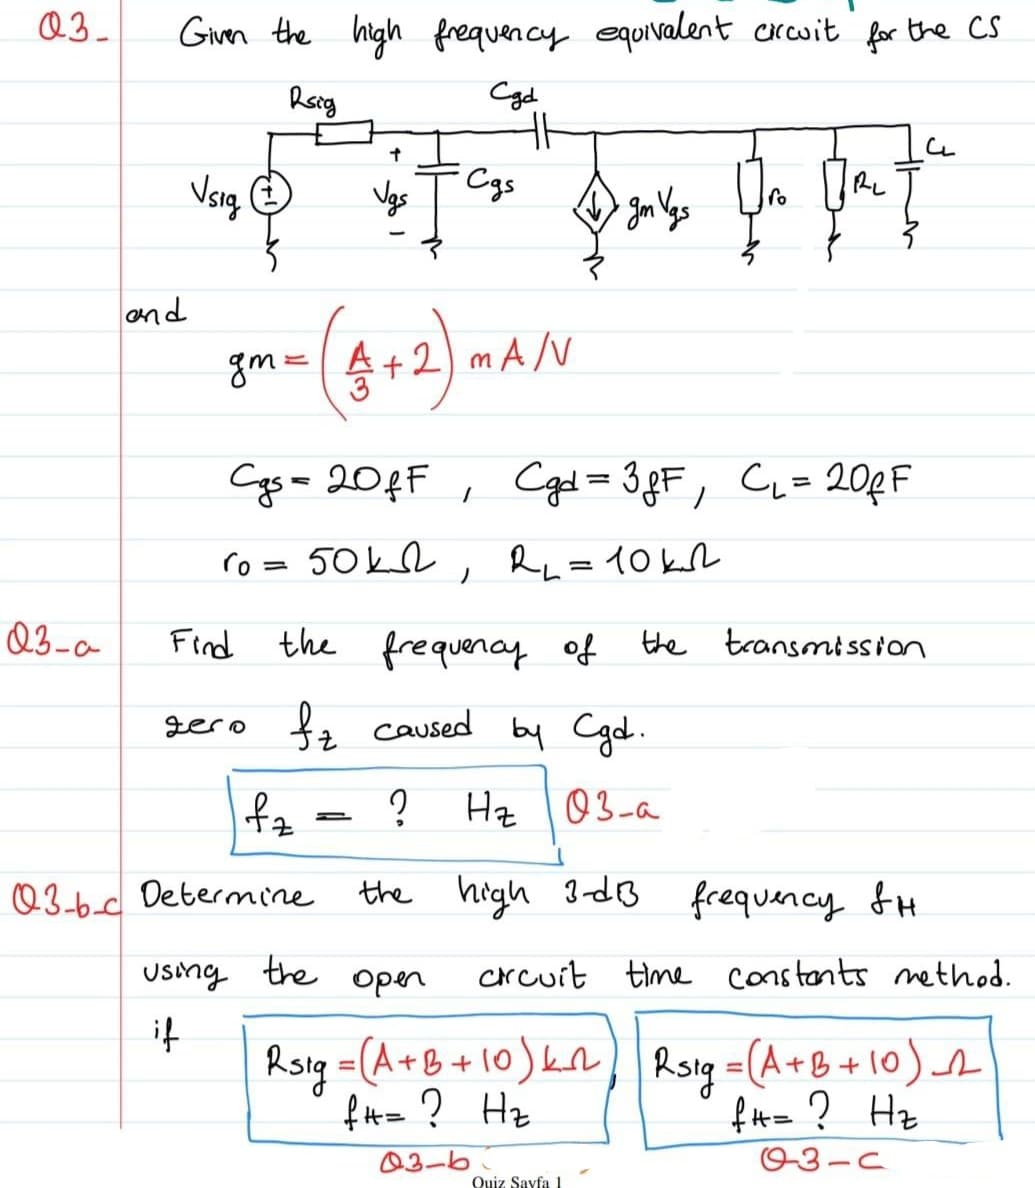 Q3- Given the high frequency equivalent circuit for the CS
Rsig Cgd
Vsig + Vgs - Cgs gmVgs ro RL CL
and
gm = (A/3 + 2) mA/V
Cgs = 20fF , Cgd = 3fF, CL = 20fF
ro = 50kΩ , RL = 10kΩ
Q3-a Find the frequency of the transmission
zero fz caused by Cgd.
fz = ? Hz Q3-a
Q3-b-c Determine the high 3-dB frequency fH
using the open circuit time constants method.
if Rsig = (A+B+10) kΩ , Rsig = (A+B+10) Ω
fH = ? Hz fH = ? Hz
Q3-b Q3-c
Quiz Sayfa 1